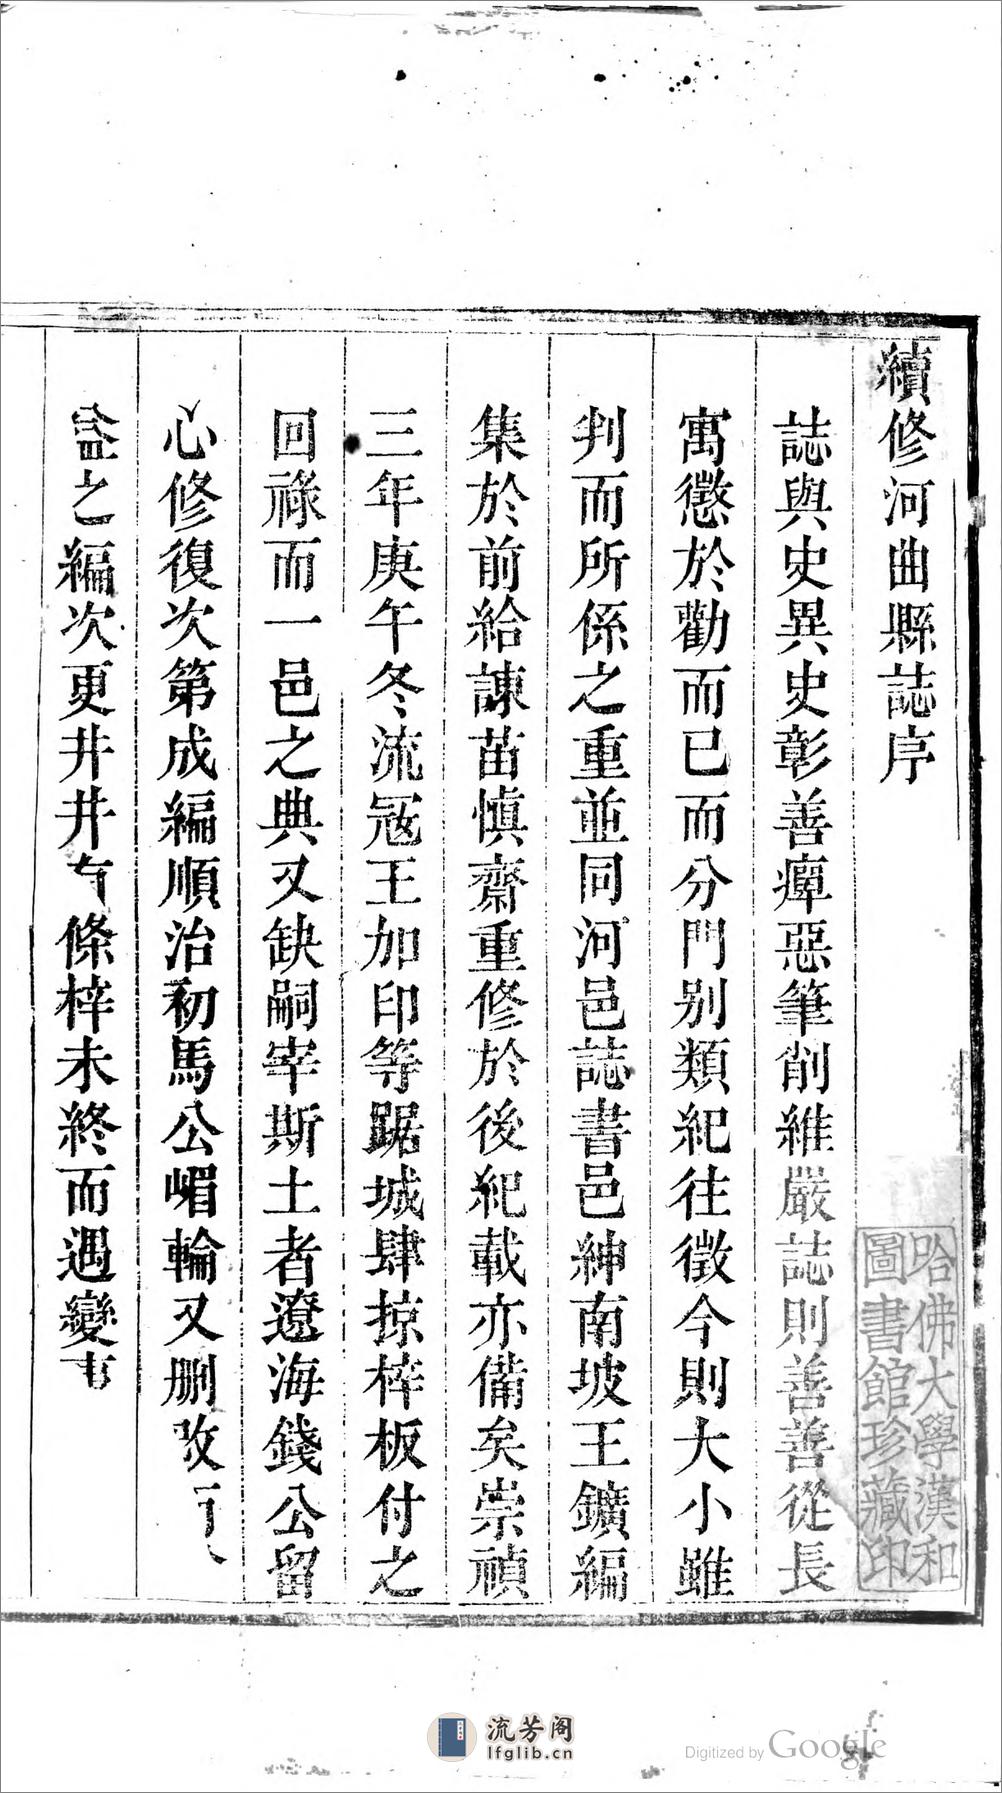 續修河曲縣誌序
誌與史異史彰善癉惡筆削維嚴誌則善善從長
寓懲於勸而已而分門别類紀往徵今則大小雖
判而所係之重並同河邑誌書邑紳南坡王鑛編
集於前給諫苗慎齋重修於後紀載亦備矣崇禎
三年庚午冬流冦王加印等踞城肆掠梓板付之
回祿而一邑之典又缺嗣宰斯土者遼海錢公留
心修復次第成編順治初馬公嵋輪又删改
益之編次更井井有條梓未終而遇變
哈佛大學漢和
圖書館珍藏印
流芳阁
lfglib.cn
Digitized by Google